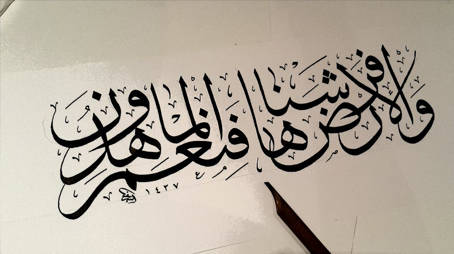 والأرض فرشناها فنعم الماهدون
١٤٣٧